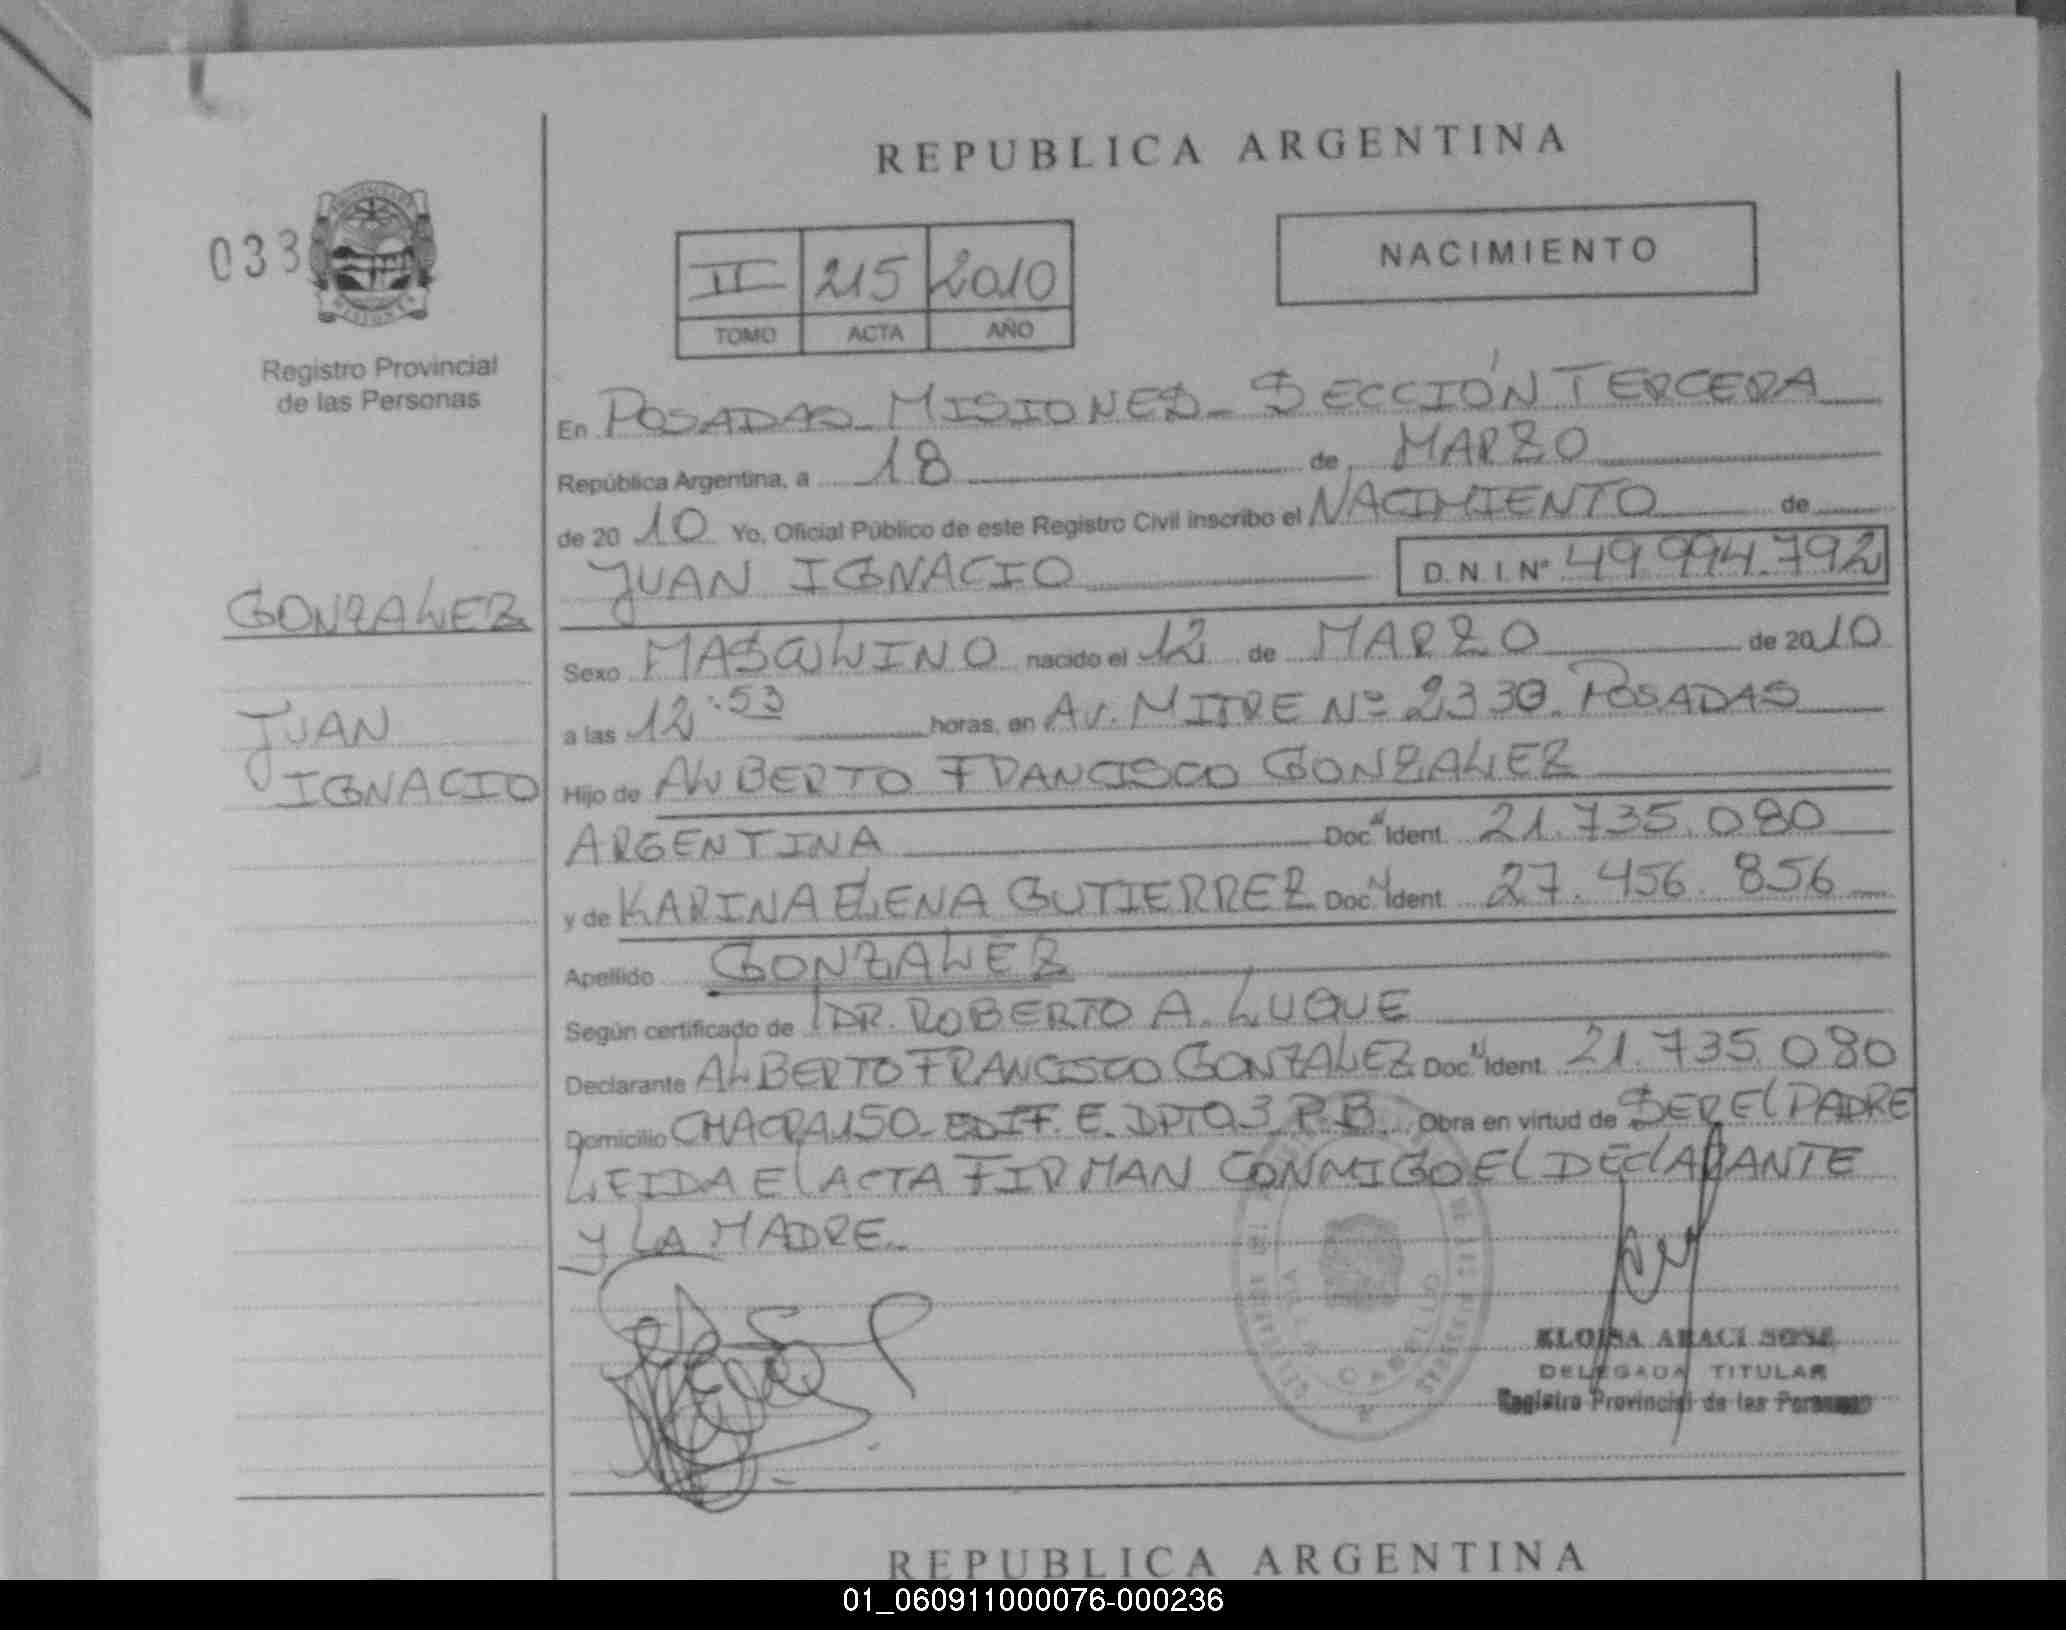 REPUBLICA ARGENTINA
033
NACIMIENTO
II 215 2010
TOMO ACTA AÑO
MISIONES
Registro Provincial
de las Personas
En POSADAS MISIONES - SECCIÓN TERCERA
República Argentina, a 18 de MARZO
de 2010 Yo, Oficial Público de este Registro Civil inscribo el NACIMIENTO de
JUAN IGNACIO D.N.I. Nº 49.994.792
GONZALEZ
Sexo MASCULINO nacido el 12 de MARZO de 2010
JUAN
a las 12:53 horas, en AV. MITRE Nº 2330. POSADAS
IGNACIO
Hijo de ALBERTO FRANCISCO GONZALEZ
ARGENTINA Doc. N Ident. 21.735.080
y de KARINA ELENA GUTIERREZ Doc. N Ident. 27.456.856
Apellido GONZALEZ
Según certificado de DR. ROBERTO A. LUQUE
Declarante ALBERTO FRANCISCO GONZALEZ Doc. N Ident. 21.735.080
Domicilio CHACRA 150 - EDIF. E. DPTO 3 P.B. Obra en virtud de SER EL PADRE
LEIDA EL ACTA FIRMAN CONMIGO EL DECLARANTE
Y LA MADRE.
VILLA CABELLO
ELOISA ARACI SOSA
DELEGADA TITULAR
Registro Provincial de las Personas
REPUBLICA ARGENTINA
01_060911000076-000236